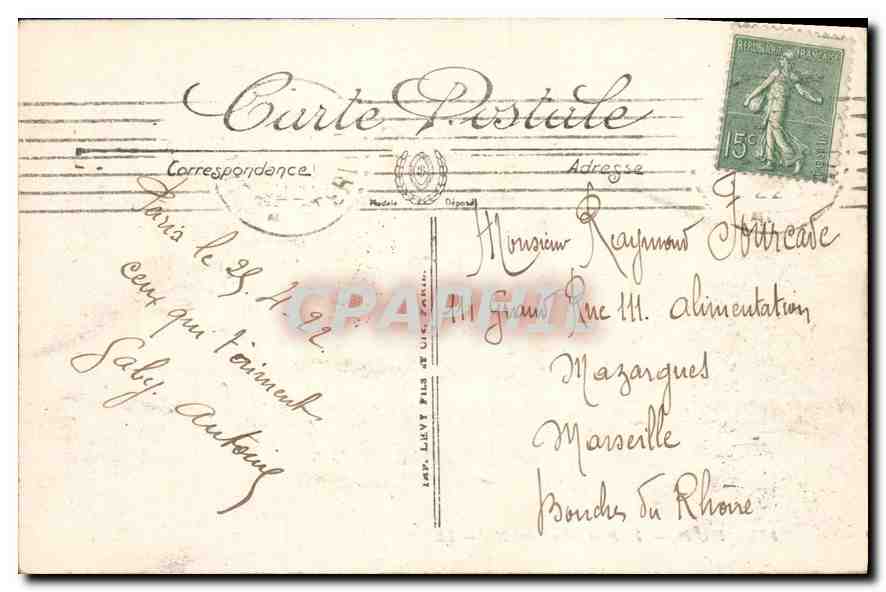 Carte Postale
Correspondance
Adresse
RÉPUBLIQUE FRANÇAISE
15c
Modèle Déposé
Paris le 25.4.22.
ceux qui t'aiment
Gaby. Antoine
Monsieur Raymond Fourcade
111 Grand Rue 111. alimentation
Mazargues
Marseille
Bouches du Rhône
IMP. LEVY FILS ET CIE, PARIS.
CPAPHIL